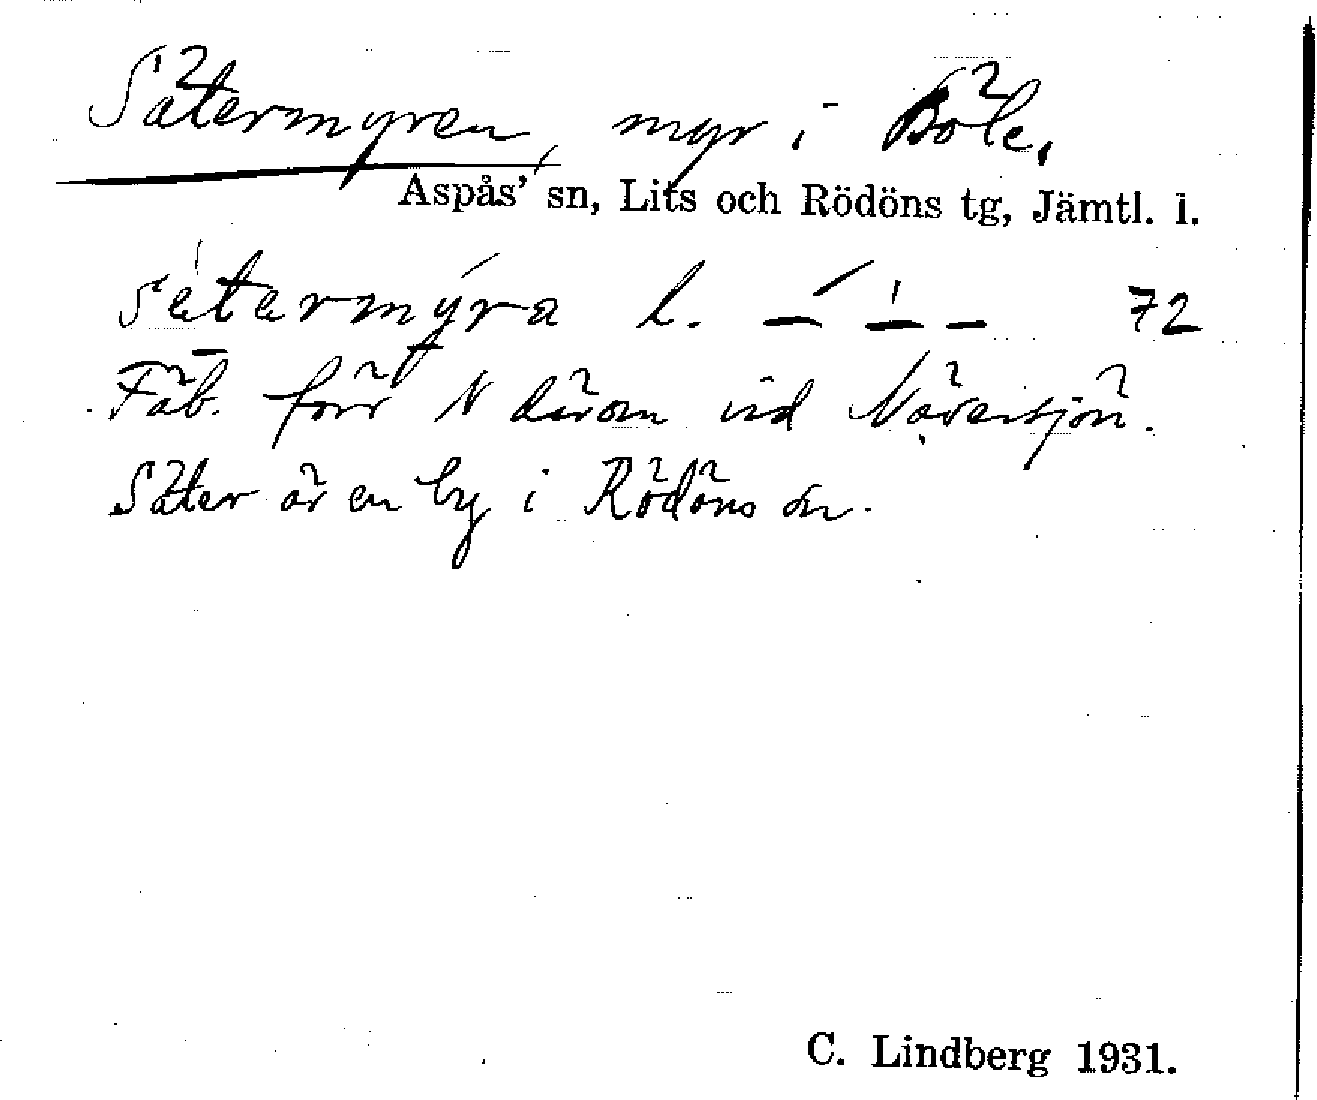 Sätermyren, myr i Böle,
Aspås' sn, Lits och Rödöns tg, Jämtl. l.
sètermýra l. 72
Fäb. förr N därom vid Näversjön.
Säter är en by i Rödöns sn.
C. Lindberg 1931.